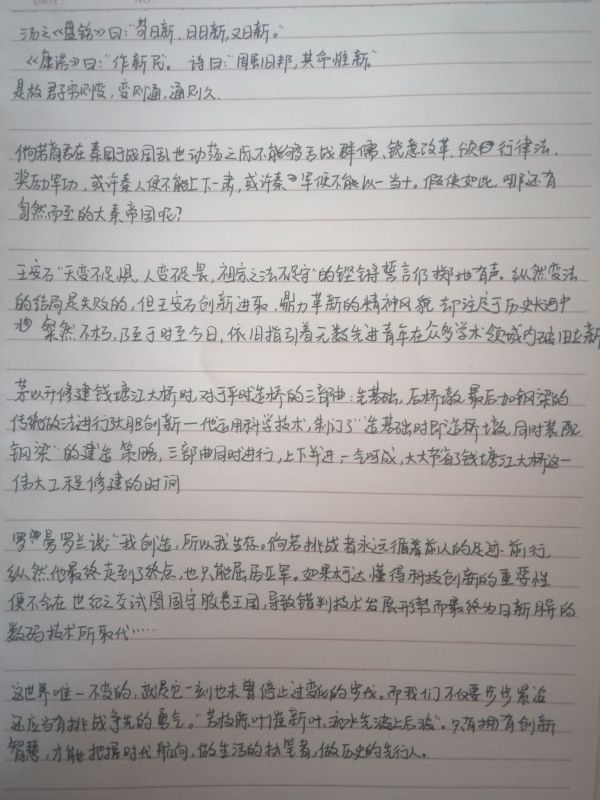 汤之《盘铭》曰："苟日新,日日新,又日新。"
《康诰》曰:"作新民"。诗曰:"周虽旧邦,其命惟新"
是故君子穷则变,变则通,通则久.
倘若商君在秦国于战国乱世动荡之际不能够舌战群儒,锐意改革,颁行律法,
奖励军功,或许秦人便不能上下一肃,或许秦军便不能以一当十。假使如此,哪还有
訇然而至的大秦帝国呢?
王安石"天变不足惧,人变不足畏,祖宗之法不足守"的铿锵誓言仍掷地有声。纵然变法
的结局是失败的,但王安石创新进取、鼎力革新的精神风貌却注定于历史长河中
粲然不朽,乃至于时至今日,依旧指引着无数先进青年在众多学术领域内破旧立新
茅以升修建钱塘江大桥时,对于平时造桥的三部曲:先基础,后桥墩,最后加钢梁的
传统做法进行大胆创新一代运用科学技术,制订了"造基础时即造桥墩,同时装配
钢梁"的建造策略,三部曲同时进行,上下并进,一气呵成,大大节省了钱塘江大桥这一
伟大工程修建的时间
罗曼罗兰说:"我创造,所以我生存。倘若挑战者永远循着前人的足迹前行
纵然他最终走到了终点,也只能屈居亚军。如果柯达懂得科技创新的重要性
便不会在世纪之交试图固守胶卷王国,导致错判技术发展形势而最终为日新月异的
数码技术所取代……
这世界唯一不变的,就是它一刻也未曾停止过变化的步伐。而我们不仅要步步紧追
还应当有挑战争先的勇气。"芳林陈叶催新叶,流水先波让后波"。只有拥有创新
智慧,才能把握时代航向,做生活的执笔者,做历史的先行人.